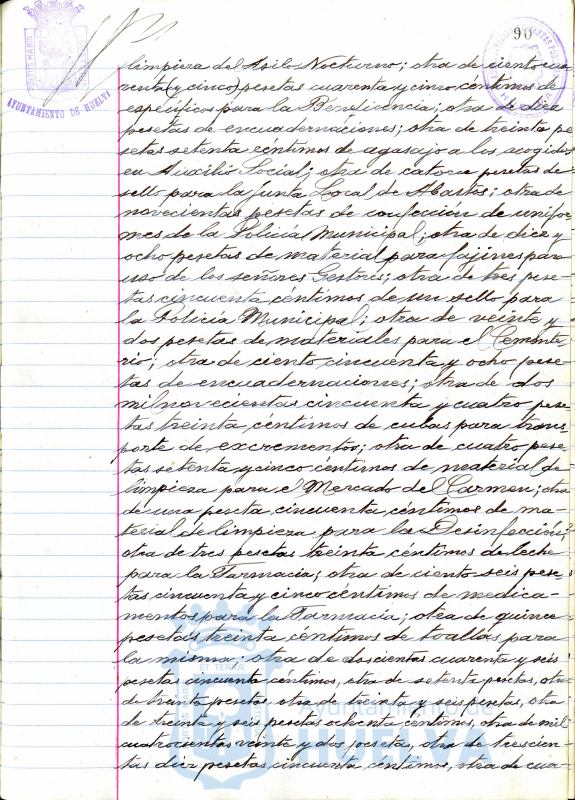 90
AYUNTAMIENTO DE HUELVA
limpieza del Asilo Nocturno; otra de ciento cua-
renta (y cinco) pesetas cuarenta y cinco céntimos de
específicos para la Beneficencia; otra de diez
pesetas de encuadernaciones; otra de treinta pe-
setas setenta céntimos de agasajo a los acogidos
en Auxilio Social; otra de catorce pesetas de
sello para la Junta Local de Abastos; otra de
novecientas pesetas de confección de unifor-
mes de la Policía Municipal; otra de diez y
ocho pesetas de material para fajines para
uso de los señores Gestores; otra de tres pese-
tas cincuenta céntimos de un sello para
la Policía Municipal; otra de veinte y
dos pesetas de materiales para el Cemente-
rio; otra de ciento cincuenta y ocho pese-
tas de encuadernaciones; otra de dos
mil novecientas cincuenta y cuatro pese-
tas treinta céntimos de cubas para trans-
porte de excrementos; otra de cuatro pese-
tas setenta y cinco céntimos de material de
limpieza para el Mercado del Carmen; otra
de una peseta cincuenta céntimos de ma-
terial de limpieza para la Desinfección;
otra de tres pesetas treinta céntimos de leche
para la Farmacia; otra de ciento seis pese-
tas cincuenta y cinco céntimos de medica-
mentos para la Farmacia; otra de quince
pesetas treinta céntimos de toallas para
la misma; otra de doscientas cuarenta y seis
pesetas cincuenta céntimos, otra de setenta pesetas, otra
de treinta pesetas, otra de treinta y seis pesetas, otra
de treinta y seis pesetas ochenta céntimos, otra de mil
cuatrocientas veinte y dos pesetas, otra de trescien-
tas diez pesetas cincuenta céntimos, otra de cua-
Ayuntamiento de
HUELVA